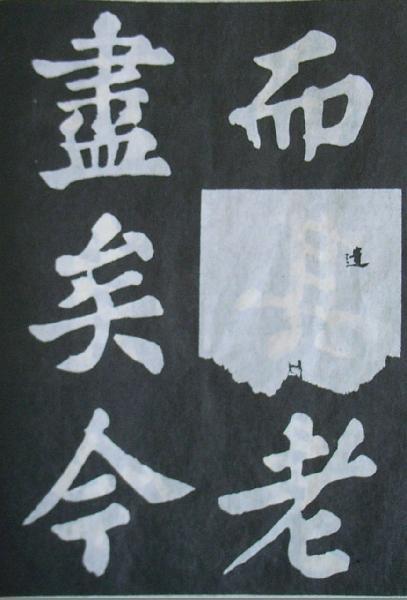 而老
盡矣今